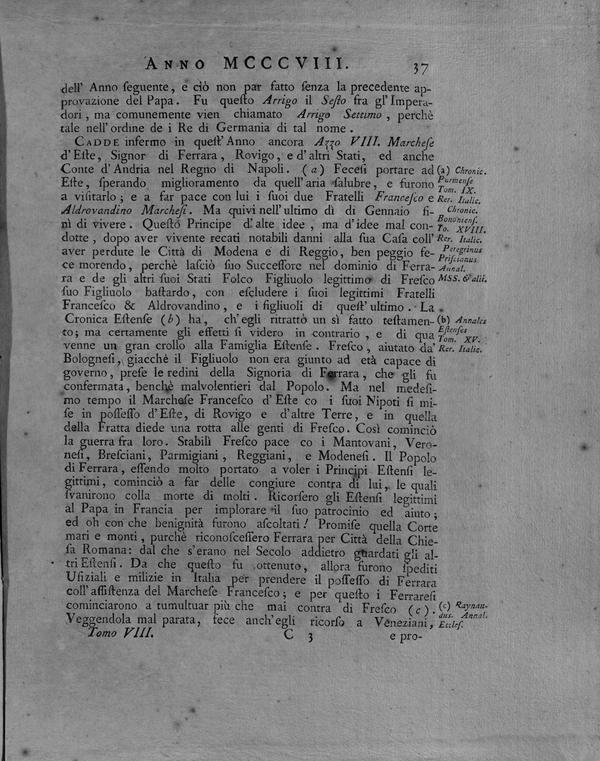 ANNO MCCCVIII. 37
dell' Anno ſeguente, e ciò non par fatto ſenza la precedente ap-
provazione del Papa. Fu queſto Arrigo il Seſto fra gl'Impera-
dori, ma comunemente vien chiamato Arrigo Settimo, perchè
tale nell'ordine de i Re di Germania di tal nome.
CADDE infermo in queſt'Anno ancora Azzo VIII. Marcheſe
d'Eſte, Signor di Ferrara, Rovigo, e d'altri Stati, ed anche
Conte d'Andria nel Regno di Napoli. (a) Feceſi portare ad
Eſte, ſperando miglioramento da quell'aria ſalubre, e furono
a viſitarlo; e a far pace con lui i ſuoi due Fratelli Franceſco e
Aldrovandino Marcheſi. Ma quivi nell'ultimo dì di Gennaio fi-
nì di vivere. Queſto Principe d'alte idee, ma d'idee mal con-
dotte, dopo aver vivente recati notabili danni alla ſua Caſa coll'
aver perdute le Città di Modena e di Reggio, ben peggio fe-
ce morendo, perchè laſciò ſuo Succeſſore nel dominio di Ferra-
ra e de gli altri ſuoi Stati Folco Figliuolo legittimo di Freſco
ſuo Figliuolo baſtardo, con eſcludere i ſuoi legittimi Fratelli
Franceſco & Aldrovandino, e i figliuoli di queſt'ultimo. La
Cronica Eſtenſe (b) ha, ch'egli ritrattò un sì fatto teſtamen-
to; ma certamente gli effetti ſi videro in contrario, e di qua
venne un gran crollo alla Famiglia Eſtenſe. Freſco, aiutato da'
Bologneſi, giacchè il Figliuolo non era giunto ad età capace di
governo, preſe le redini della Signoria di Ferrara, che gli fu
confermata, benchè malvolentieri dal Popolo. Ma nel medeſi-
mo tempo il Marcheſe Franceſco d'Eſte co i ſuoi Nipoti ſi mi-
ſe in poſſeſſo d'Eſte, di Rovigo e d'altre Terre, e in quella
della Fratta diede una rotta alle genti di Freſco. Così cominciò
la guerra fra loro. Stabilì Freſco pace co i Mantovani, Vero-
neſi, Breſciani, Parmigiani, Reggiani, e Modeneſi. Il Popolo
di Ferrara, eſſendo molto portato a voler i Principi Eſtenſi le-
gittimi, cominciò a far delle congiure contra di lui, le quali
ſvanirono colla morte di molti. Ricorſero gli Eſtenſi legittimi
al Papa in Francia per implorare il ſuo patrocinio ed aiuto;
ed oh con che benignità furono aſcoltati! Promiſe quella Corte
mari e monti, purchè riconoſceſſero Ferrara per Città della Chie-
ſa Romana: dal che s'erano nel Secolo addietro guardati gli al-
tri Eſtenſi. Da che queſto fu ottenuto, allora furono ſpediti
Ufiziali e milizie in Italia per prendere il poſſeſſo di Ferrara
coll'aſſiſtenza del Marcheſe Franceſco; e per queſto i Ferrareſi
cominciarono a tumultuar più che mai contra di Freſco (c).
Veggendola mal parata, fece anch'egli ricorſo a Veneziani,
Tomo VIII. C 3 e pro-
(a) Chronic.
Parmenſe
Tom. IX.
Rer. Italic.
Chronic.
Bononienſ.
To. XVIII.
Rer. Italic.
Peregrinus
Priſcianus
Annal.
MSS. & alii.
(b) Annales
Eſtenſes
Tom. XV.
Rer. Italic.
(c) Raynau-
dus. Annal.
Eccleſ.